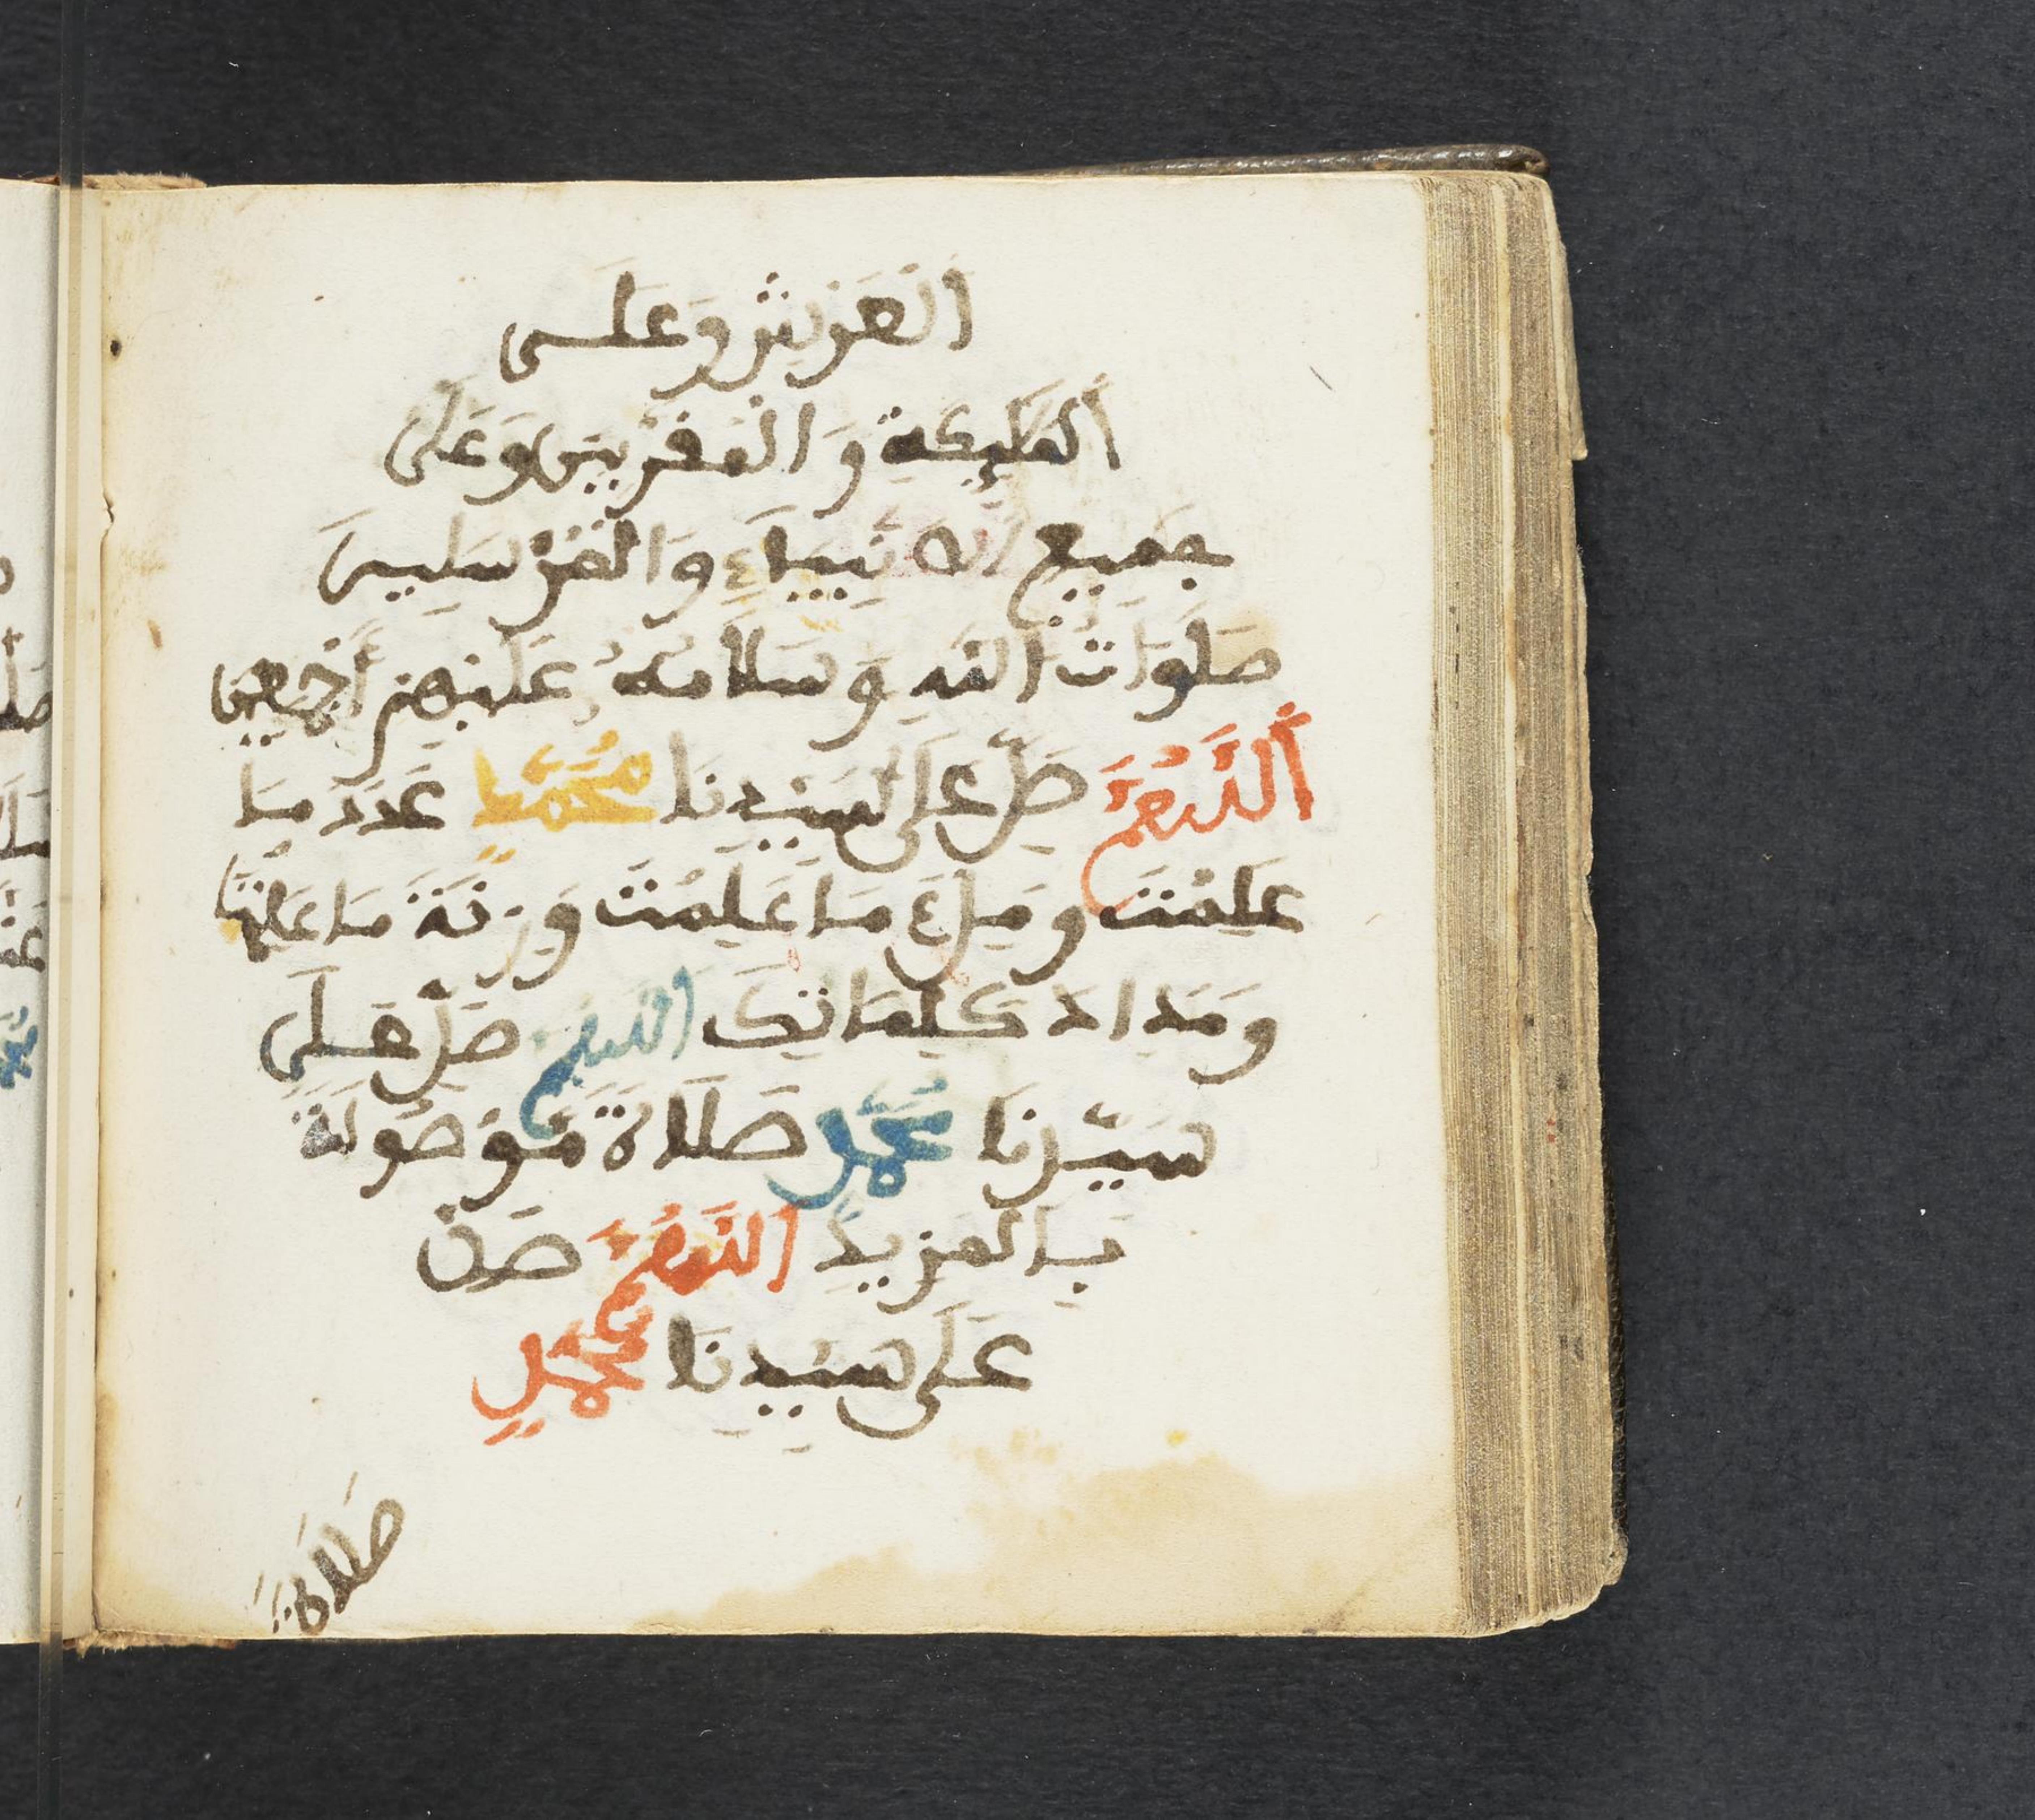 الْعَرْشِ وَعَلَى
أَلْمَلَئِكَةِ وَالْمُقَرَّبِينَ وَعَلَى
جَمِيعِ الْأَنْبِيَاءِ وَالْمُرْسَلِينَ
صَلَوَاتُ اللَّهِ وَسَلَامُهُ عَلَيْهِمْ أَجْمَعِين
أَللَّهُمَّ صَلِّ عَلَى سَيِّدِنَا مُحَمَّدٍ عَدَدَ مَا
عَلِمْتَ وَمِلْءَ مَا عَلِمْتَ وَزِنَةَ مَا عَلِمْتَ
وَمِدَادَ كَلِمَاتِكَ اللَّهُمَّ صَلِّ عَلَى
سَيِّدِنَا مُحَمَّدٍ صَلَاةً مَوْصُولَةً
بِالْمَزِيدِ اللَّهُمَّ صَلِّ
عَلَى سَيِّدِنَا مُحَمَّدٍ
صَلَاةً